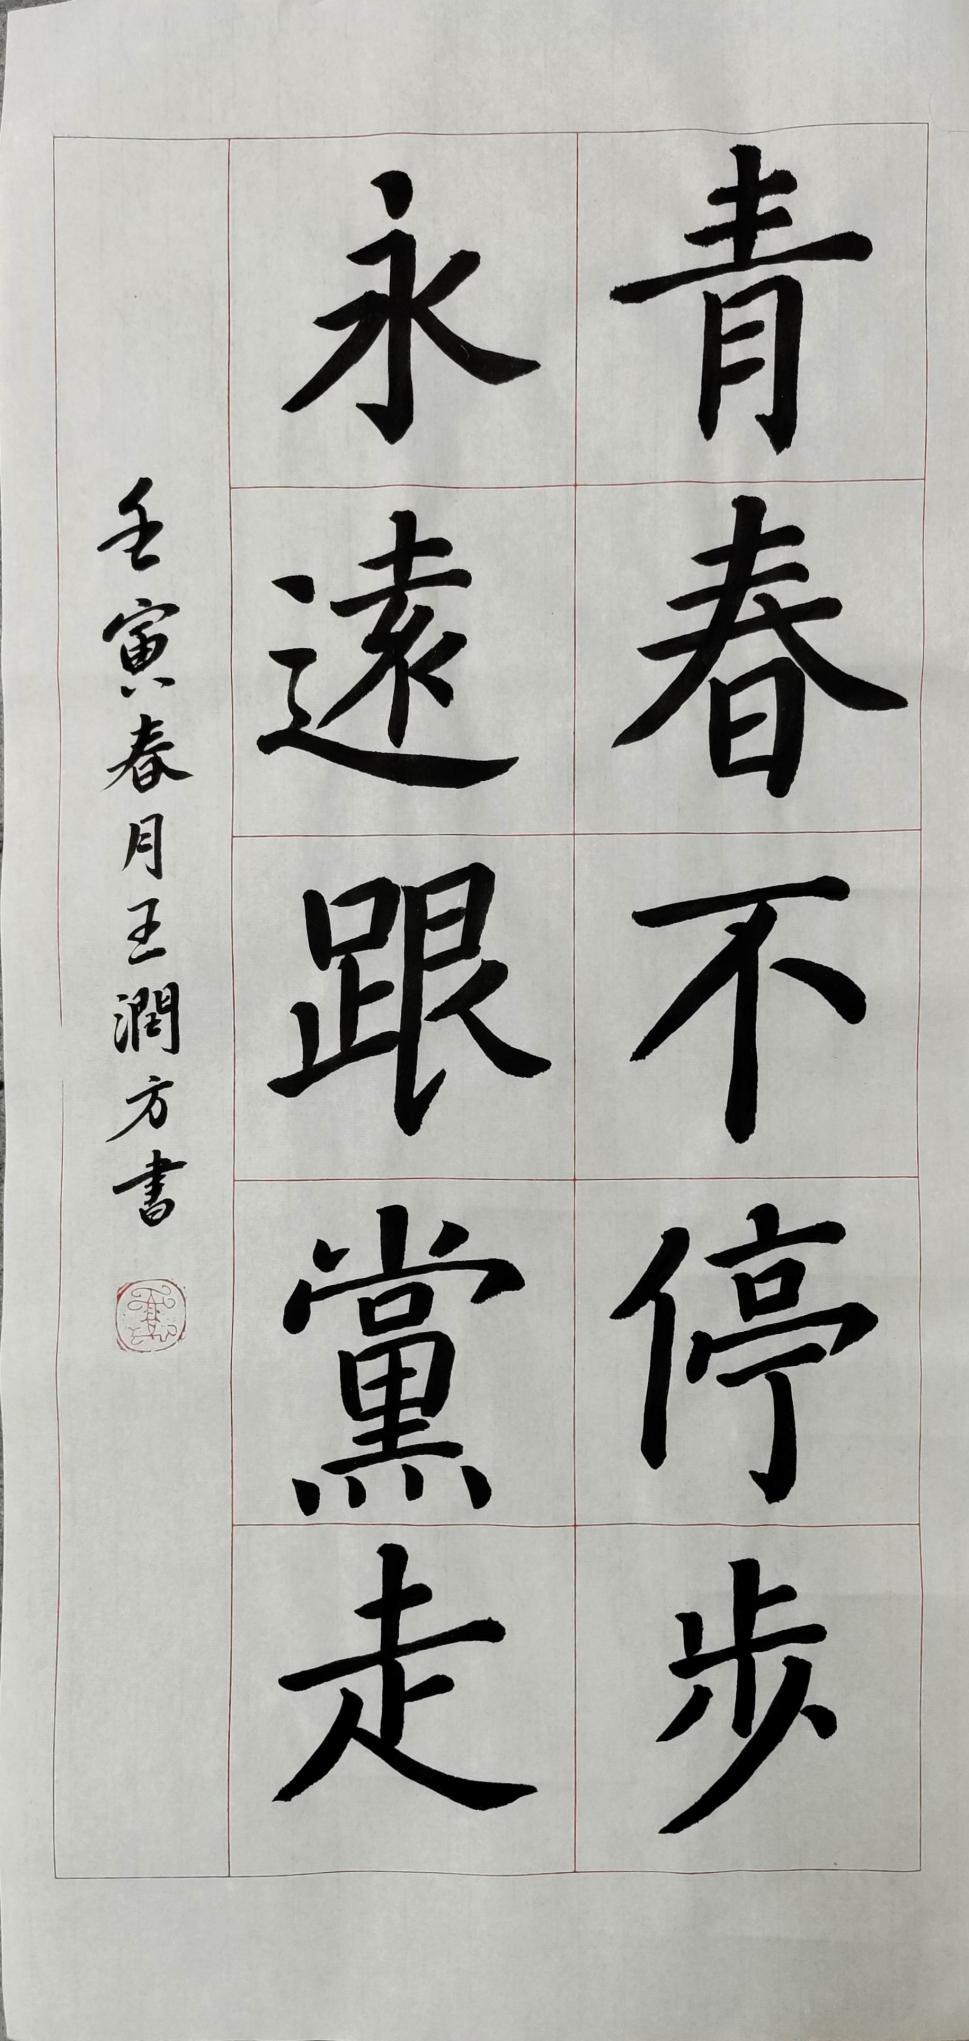 青春不停步
永遠跟黨走
壬寅春月王潤方書